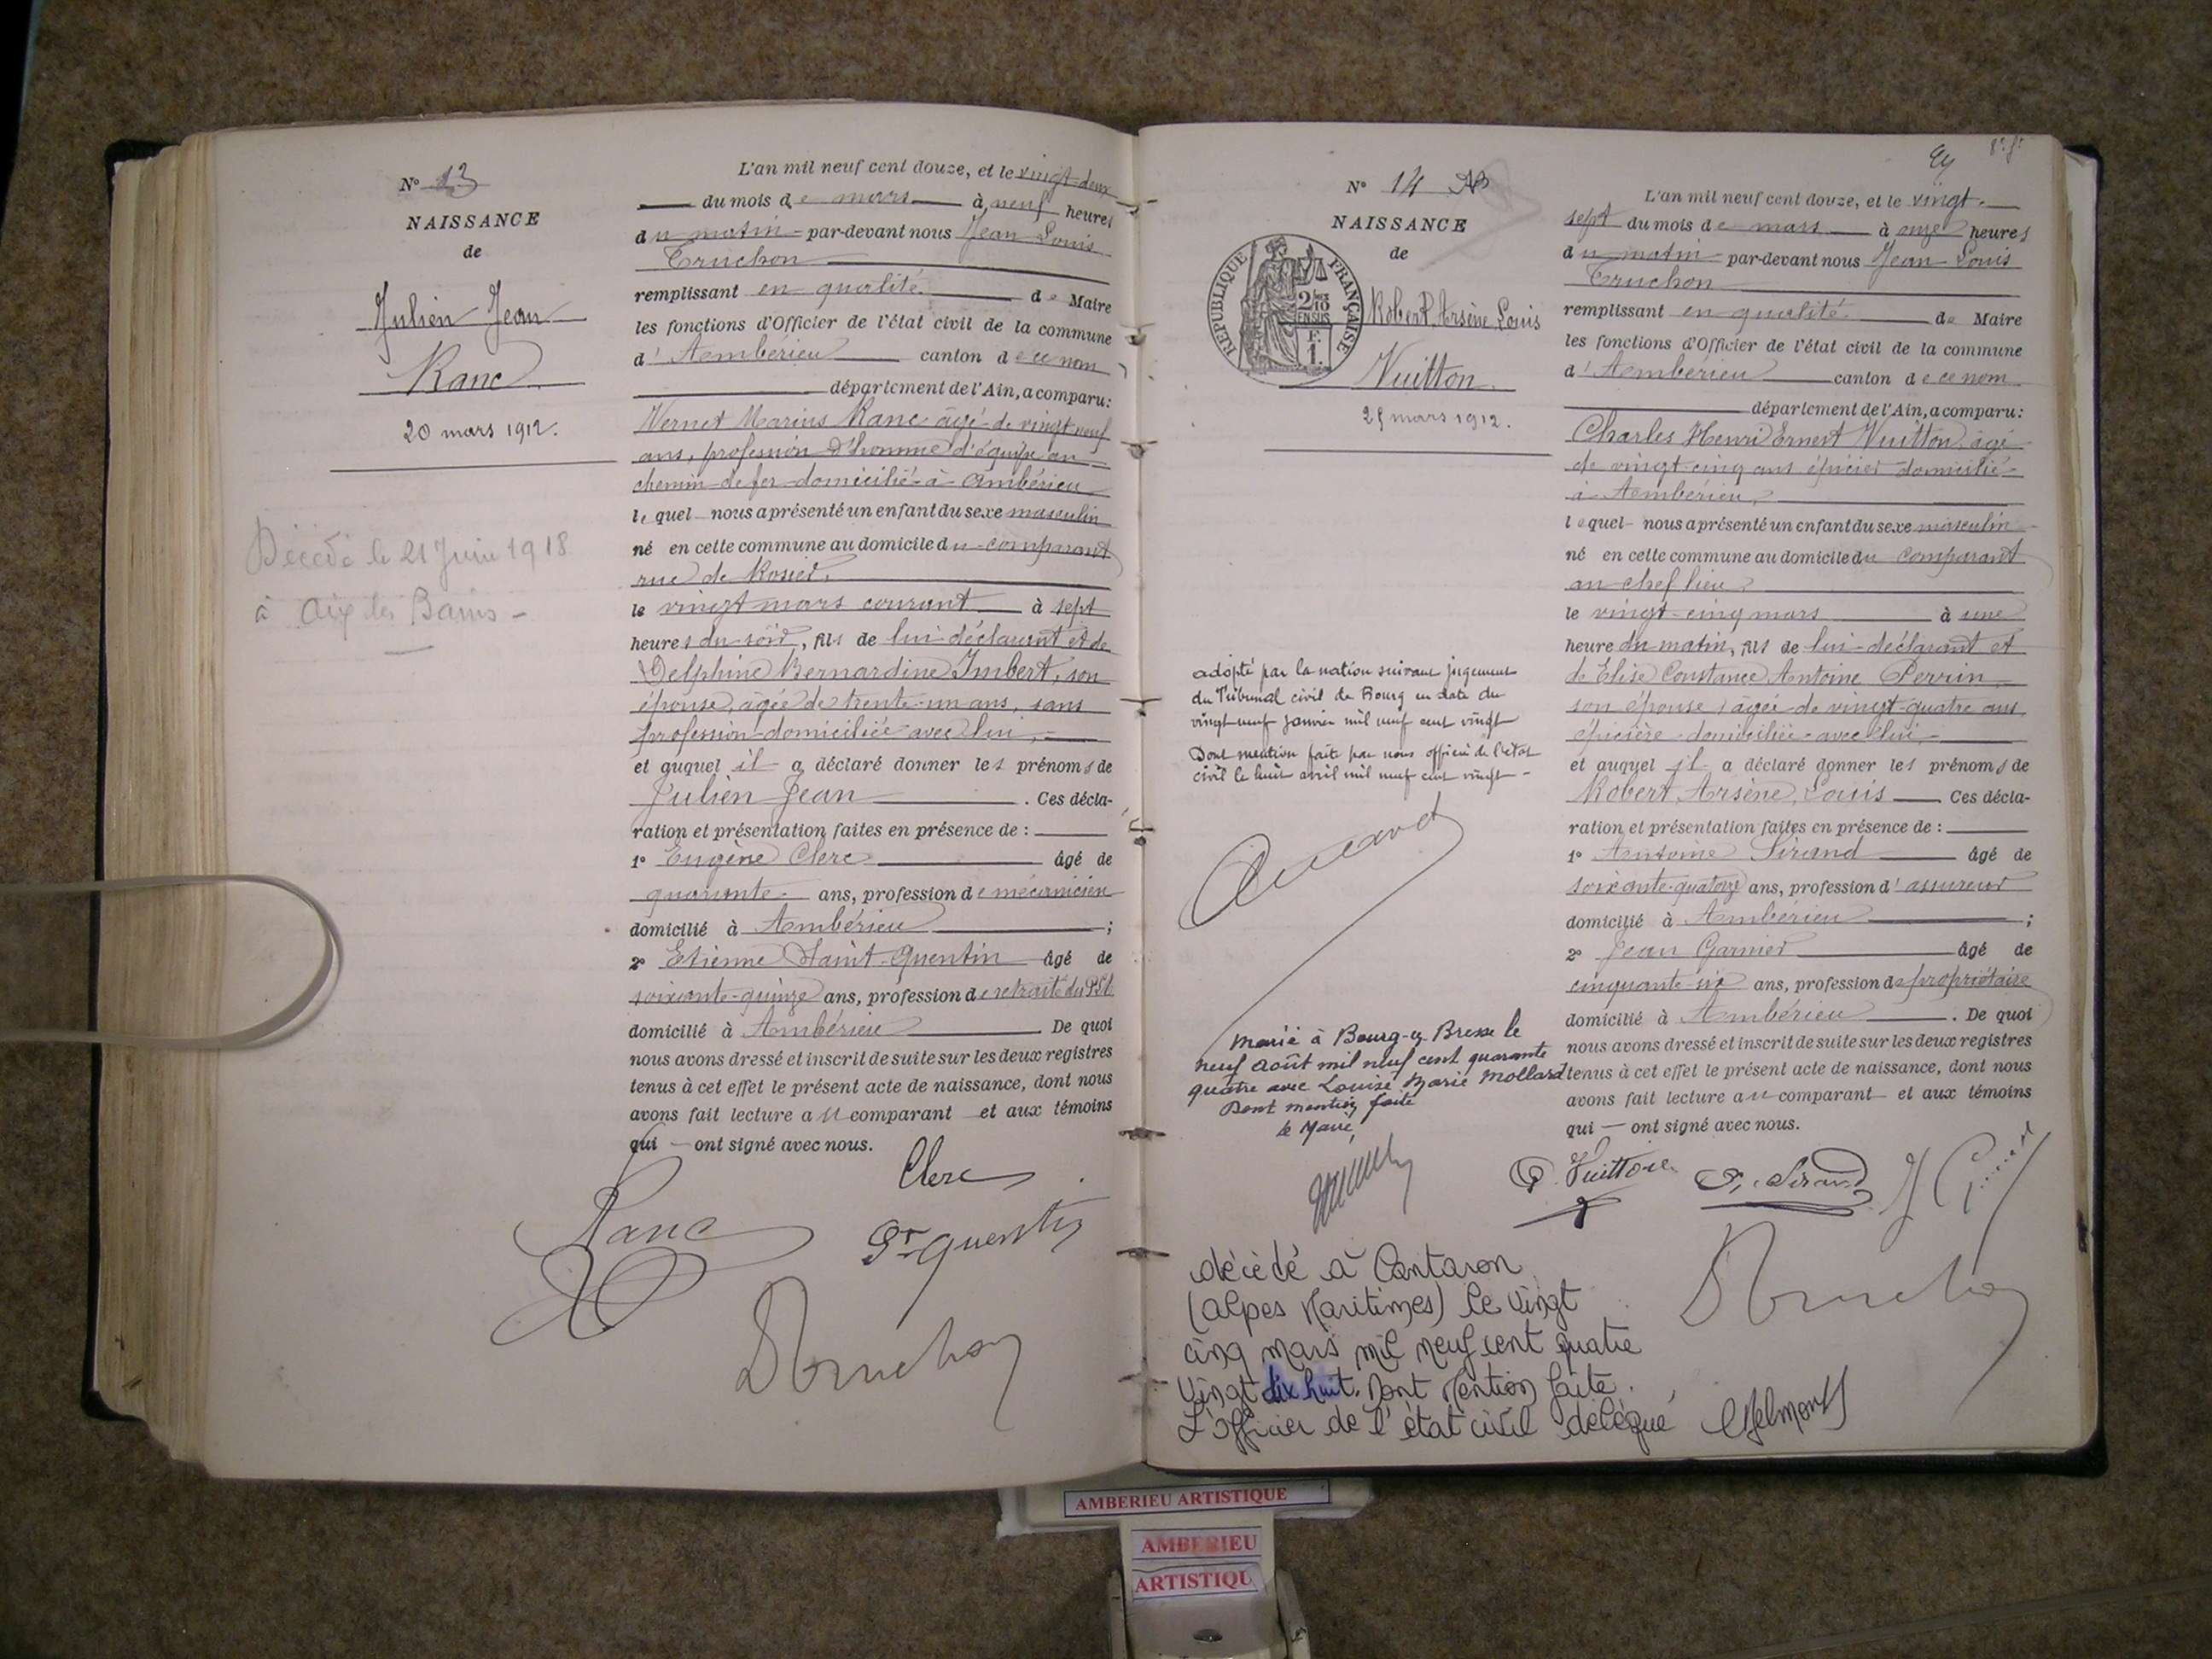 N° 13
NAISSANCE
de
Julien Jean
Ranc
20 mars 1912.
Décédé le 21 Juin 1918
à Aix les Bains -
L'an mil neuf cent douze, et le vingt-deux
du mois de mars à neuf heures
du matin par-devant nous Jean Louis
Truchon
remplissant en qualité de Maire
les fonctions d'Officier de l'état civil de la commune
d'Ambérieu canton de ce nom,
département de l'Ain, a comparu:
Vernet Marius Ranc âgé de vingt neuf
ans, profession d'homme d'équipe au
chemin de fer domicilié à Ambérieu
lequel nous a présenté un enfant du sexe masculin
né en cette commune au domicile du comparant
rue de
le vingt mars courant à sept
heures du soir, fils de lui déclarant et de
Delphine Bernardine Imbert, son
épouse, âgée de trente-un ans, sans
profession domiciliée avec lui,
et auquel il a déclaré donner les prénoms de
Julien Jean . Ces décla-
ration et présentation faites en présence de :
1° Eugène Clerc âgé de
quarante ans, profession de mécanicien
domicilié à Ambérieu ;
2° Etienne Saint-Quentin âgé de
soixante-quinze ans, profession de retraité du
domicilié à Ambérieu . De quoi
nous avons dressé et inscrit de suite sur les deux registres
tenus à cet effet le présent acte de naissance, dont nous
avons fait lecture au comparant et aux témoins
qui ont signé avec nous.
Clerc
Ranc
St-Quentin
Truchon
N° 14
NAISSANCE
de
REPUBLIQUE FRANÇAISE
2/10
EN SUS
F.
1.
Robert, Arsène, Louis
Vuitton.
25 mars 1912.
adopté par la nation suivant jugement
du Tribunal civil de Bourg en date du
vingt neuf janvier mil neuf cent vingt
Dont mention faite par nous officier de l'état
civil le huit avril mil neuf cent vingt -
Marié à Bourg-en-Bresse le
neuf Août mil neuf cent quarante
quatre avec Louise Marie Mollard
Dont mention faite
Le Maire,
L'an mil neuf cent douze, et le vingt-
sept du mois de mars à onze heures
du matin par-devant nous Jean Louis
Truchon
remplissant en qualité de Maire
les fonctions d'Officier de l'état civil de la commune
d'Ambérieu canton de ce nom
département de l'Ain, a comparu:
Charles Henri Ernest Vuitton, âgé
de vingt-cinq ans épicier domicilié
à Ambérieu,
lequel nous a présenté un enfant du sexe masculin
né en cette commune au domicile du comparant
au chef lieu
le vingt-cinq mars à une
heure du matin, fils de lui déclarant et
de Elise Constance Antoine Perrin
son épouse, âgée de vingt-quatre ans,
épicière domiciliée avec lui,
et auquel il a déclaré donner les prénoms de
Robert, Arsène, Louis Ces décla-
ration et présentation faites en présence de :
1° Antoine Sirand âgé de
soixante-quatorze ans, profession d'assureur
domicilié à Ambérieu ;
2° Jean Garnier âgé de
cinquante six ans, profession de propriétaire
domicilié à Ambérieu . De quoi
nous avons dressé et inscrit de suite sur les deux registres
tenus à cet effet le présent acte de naissance, dont nous
avons fait lecture au comparant et aux témoins
qui ont signé avec nous.
Vuitton
A. Sirand
Truchon
décédé à Cantaron
(Alpes Maritimes) le vingt
cinq mars mil neuf cent quatre
vingt dix huit. Dont Mention faite.
L'Officier de l'état civil délégué
AMBERIEU ARTISTIQUE
AMBERIEU
ARTISTIQU